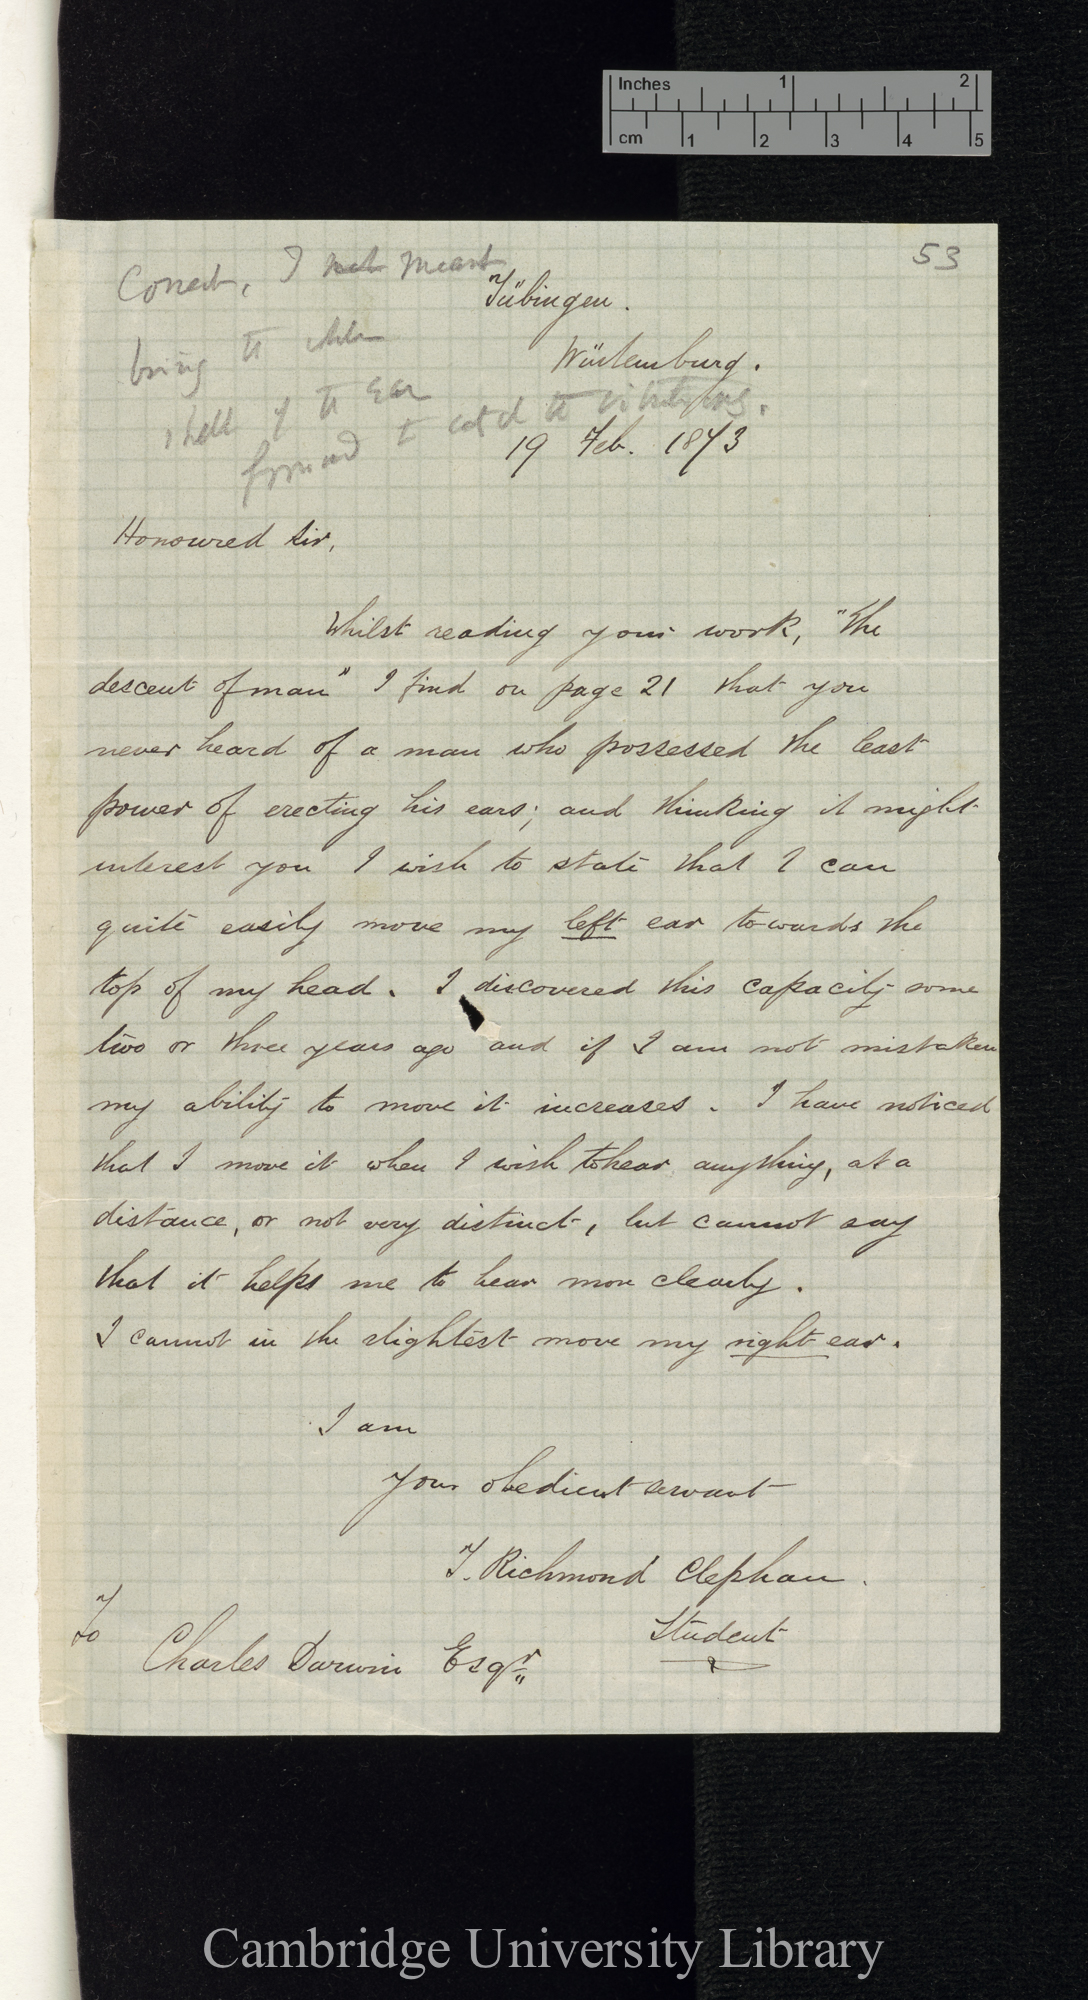 Inches 1 2
cm 1 2 3 4 5
53
Correct, I not meant
bring the whole
shell of the ear
forward to catch the vibrations.
Tübingen.
Würtemburg.
19 Feb. 1873
Honoured Sir,
Whilst reading your work, "The
descent of man" I find on page 21 that you
never heard of a man who possessed the least
power of erecting his ears; and thinking it might
interest you I wish to state that I can
quite easily move my left ear towards the
top of my head. I discovered this capacity some
two or three years ago and if I am not mistaken
my ability to move it increases. I have noticed
that I move it when I wish to hear anything, at a
distance, or not very distinct, but cannot say
that it helps me to hear more clearly.
I cannot in the slightest move my right ear.
I am
Your obedient servant
T. Richmond Clephan.
Student
To
Charles Darwin Esqr.
Cambridge University Library